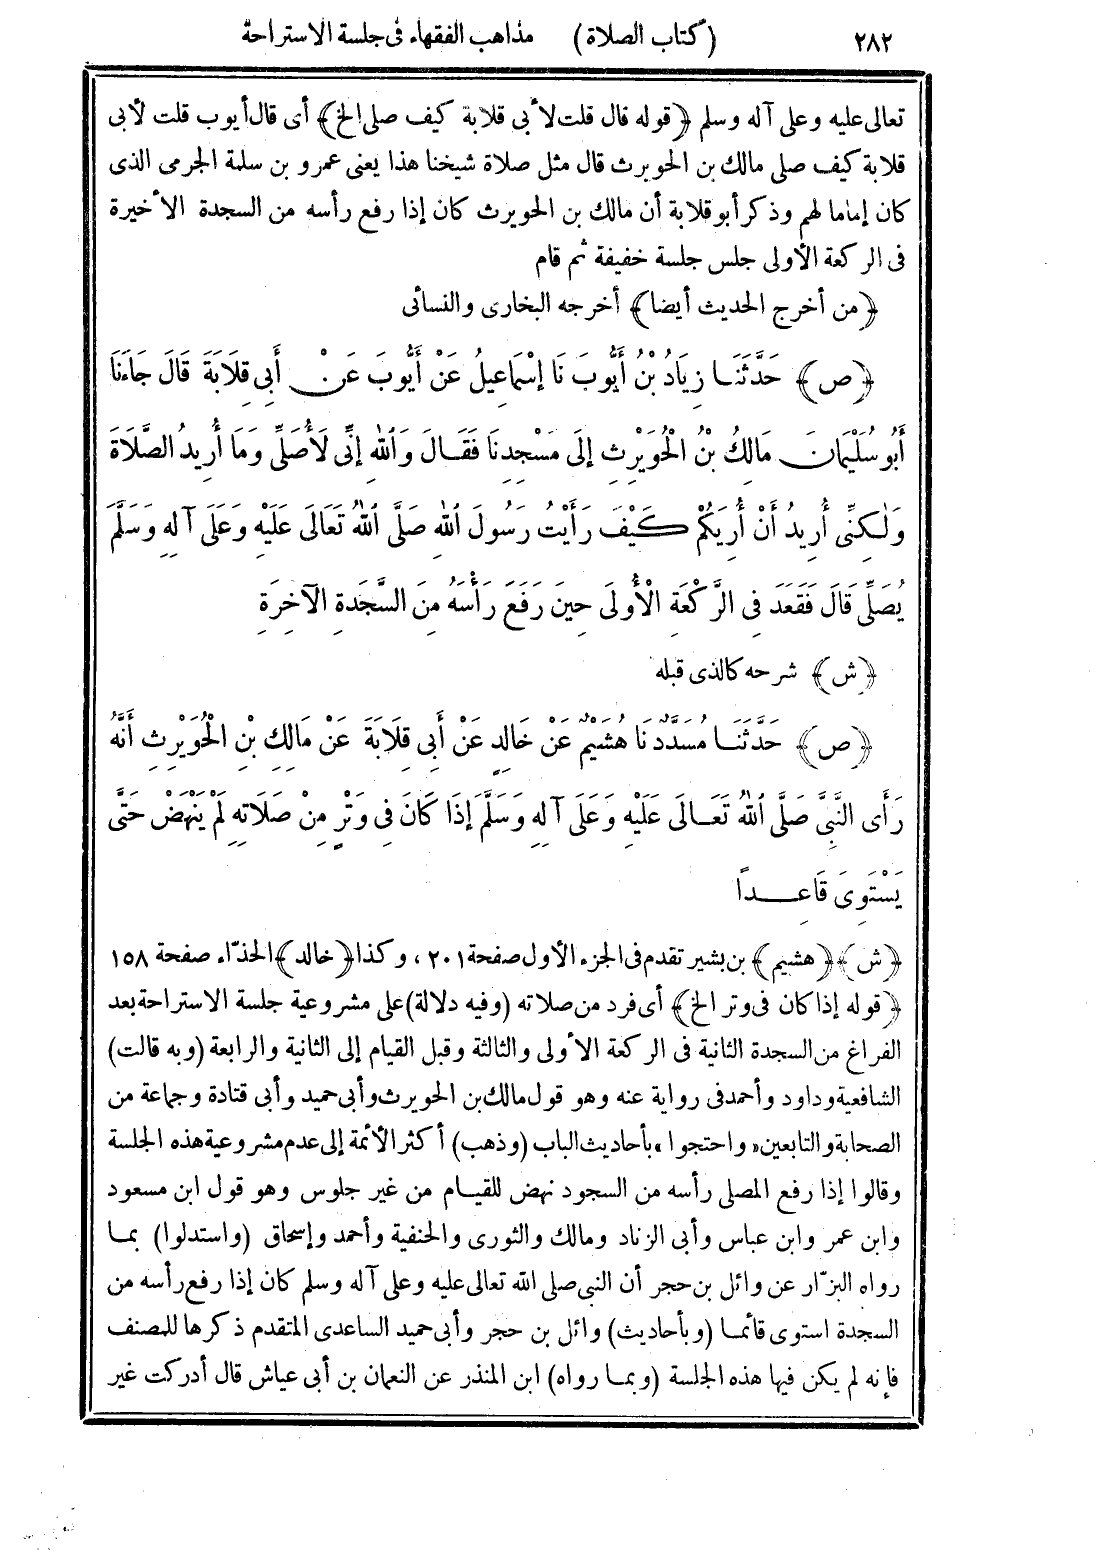 ٢٨٢ (كتاب الصلاة) مذاهب الفقهاء فى جلسة الاستراحة
تعالى عليه وعلى آله وسلم ﴿قوله قال قلت لأبى قلابة كيف صلى الخ﴾ أى قال أيوب قلت لأبى
قلابة كيف صلى مالك بن الحويرث قال مثل صلاة شيخنا هذا يعنى عمرو بن سلمة الجرمى الذى
كان إماما لهم وذكر أبو قلابة أن مالك بن الحويرث كان إذا رفع رأسه من السجدة الأخيرة
فى الركعة الأولى جلس جلسة خفيفة ثم قام
﴿من أخرج الحديث أيضا﴾ أخرجه البخارى والنسائى
﴿ص﴾ حَدَّثَنَا زِيَادُ بْنُ أَيُّوبَ نَا إِسْمَاعِيلُ عَنْ أَيُّوبَ عَنْ أَبِى قِلَابَةَ قَالَ جَاءَنَا
أَبُو سُلَيْمَانَ مَالِكُ بْنُ الْحُوَيْرِثِ إِلَى مَسْجِدِنَا فَقَالَ وَاللهِ إِنِّى لَأُصَلِّى وَمَا أُرِيدُ الصَّلَاةَ
وَلَكِنِّى أُرِيدُ أَنْ أُرِيَكُمْ كَيْفَ رَأَيْتُ رَسُولَ اللهِ صَلَّى اللهُ تَعَالَى عَلَيْهِ وَعَلَى آلِهِ وَسَلَّمَ
يُصَلِّى قَالَ فَقَعَدَ فِى الرَّكْعَةِ الْأُولَى حِينَ رَفَعَ رَأْسَهُ مِنَ السَّجْدَةِ الآخِرَةِ
﴿ش﴾ شرحه كالذى قبله
﴿ص﴾ حَدَّثَنَا مُسَدَّدٌ نَا هُشَيْمٌ عَنْ خَالِدٍ عَنْ أَبِى قِلَابَةَ عَنْ مَالِكِ بْنِ الْحُوَيْرِثِ أَنَّهُ
رَأَى النَّبِىَّ صَلَّى اللهُ تَعَالَى عَلَيْهِ وَعَلَى آلِهِ وَسَلَّمَ إِذَا كَانَ فِى وَتْرٍ مِنْ صَلَاتِهِ لَمْ يَنْهَضْ حَتَّى
يَسْتَوِىَ قَاعِدًا
﴿ش﴾ ﴿هشيم﴾ بن بشير تقدم فى الجزء الأول صفحة ٢٠١، وكذا ﴿خالد﴾ الحذّاء صفحة ١٥٨
﴿قوله إذا كان فى وتر الخ﴾ أى فرد من صلاته (وفيه دلالة) على مشروعية جلسة الاستراحة بعد
الفراغ من السجدة الثانية فى الركعة الأولى والثالثة وقبل القيام إلى الثانية والرابعة (وبه قالت)
الشافعية وداود وأحمد فى رواية عنه وهو قول مالك بن الحويرث وأبى حميد وأبى قتادة وجماعة من
الصحابة والتابعين «واحتجوا» بأحاديث الباب (وذهب) أكثر الأئمة إلى عدم مشروعية هذه الجلسة
وقالوا إذا رفع المصلى رأسه من السجود نهض للقيام من غير جلوس وهو قول ابن مسعود
وابن عمر وابن عباس وأبى الزناد ومالك والثورى والحنفية وأحمد وإسحاق (واستدلوا) بما
رواه البزّار عن وائل بن حجر أن النبى صلى الله تعالى عليه وعلى آله وسلم كان إذا رفع رأسه من
السجدة استوى قائما (وبأحاديث) وائل بن حجر وأبى حميد الساعدى المتقدم ذكرها للمصنف
فإنه لم يكن فيها هذه الجلسة (وبما رواه) ابن المنذر عن النعمان بن أبى عياش قال أدركت غير